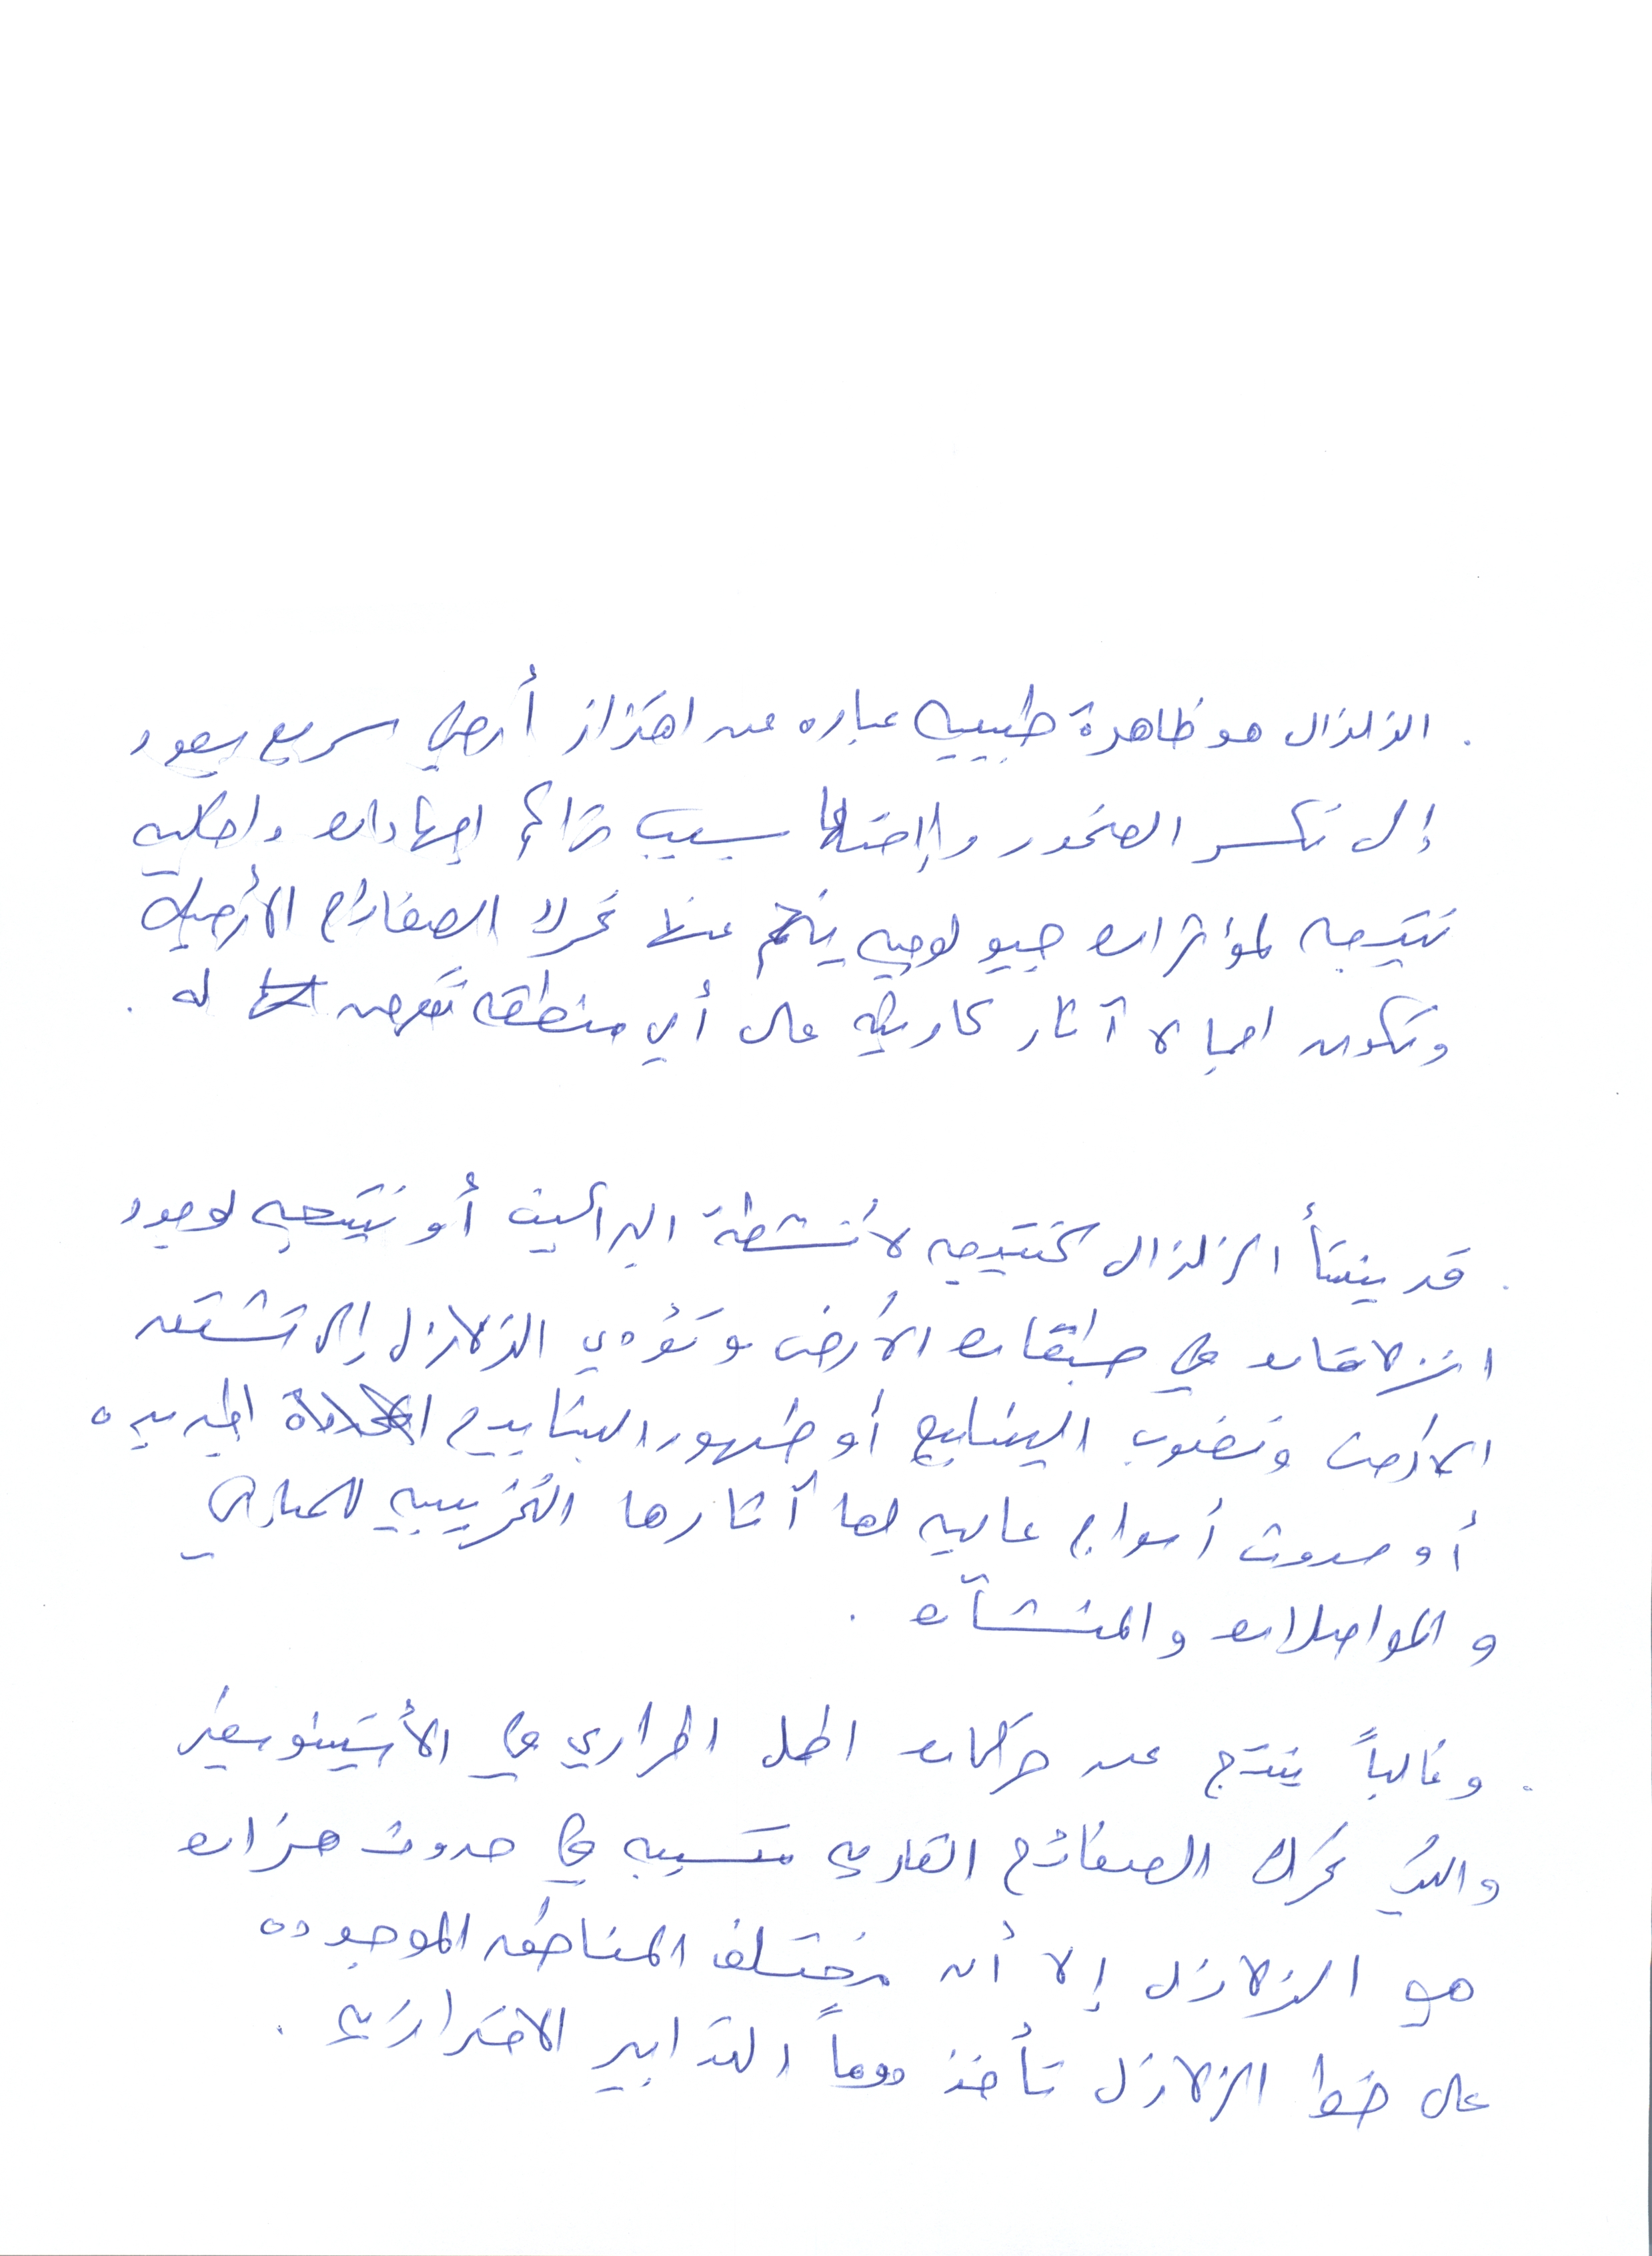 . الزلزال هو ظاهرة طبيعيه عباره عن اهتزاز أرضي سريع يعود
إلى تكسر الصخور وإزاحتها بسبب تراكم اجهادات داخليه
نتيجه لمؤثرات جيو لوجيه ينجم عنها تحرك الصفائح الأرضية
وتكون احيانا آثار كارثيه على أي منطقه تتعرض له .
. قد ينشأ الزلزال كنتيجه لأنشطة البراكين أو نتيجه لوجود
انزلاقات في طبقات الأرض وتؤدي الزلازل إلى تشقق
الأرض ونضوب الينابيع أو ظهور الينابيع الجديده
أو حدوث أمواج عاليه لها آثارها التخريبيه للمباني
و المواصلات والمنشآت .
. وغالباً ينتج عن حركات الحمل الحراري في الأستينوسفير
والتي تحرك الصفائح القاريه متسببه في حدوث هزات
هي الزلازل إلا أن مختلف المناطق الموجوده
على خط الزلازل تأخذ دوماً التدابير الاحترازيه .